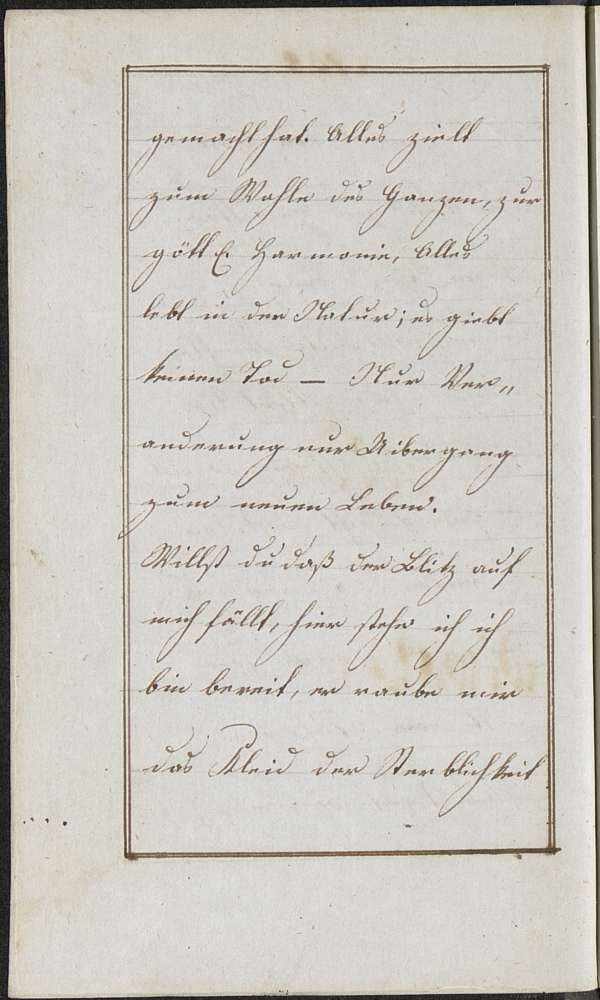 gemacht hat. Alles zielt
zum Wohle des Ganzen, zur
göttl. Harmonie, Alles
lebt in der Natur; es giebt
keinen Tod — Nur Ver„
anderung nur Uibergang
zum neuen Leben.
Willst du daß der Blitz auf
mich fällt, hier stehe ich ich
bin bereit, er raube mir
das Kleid der Sterblichkeit